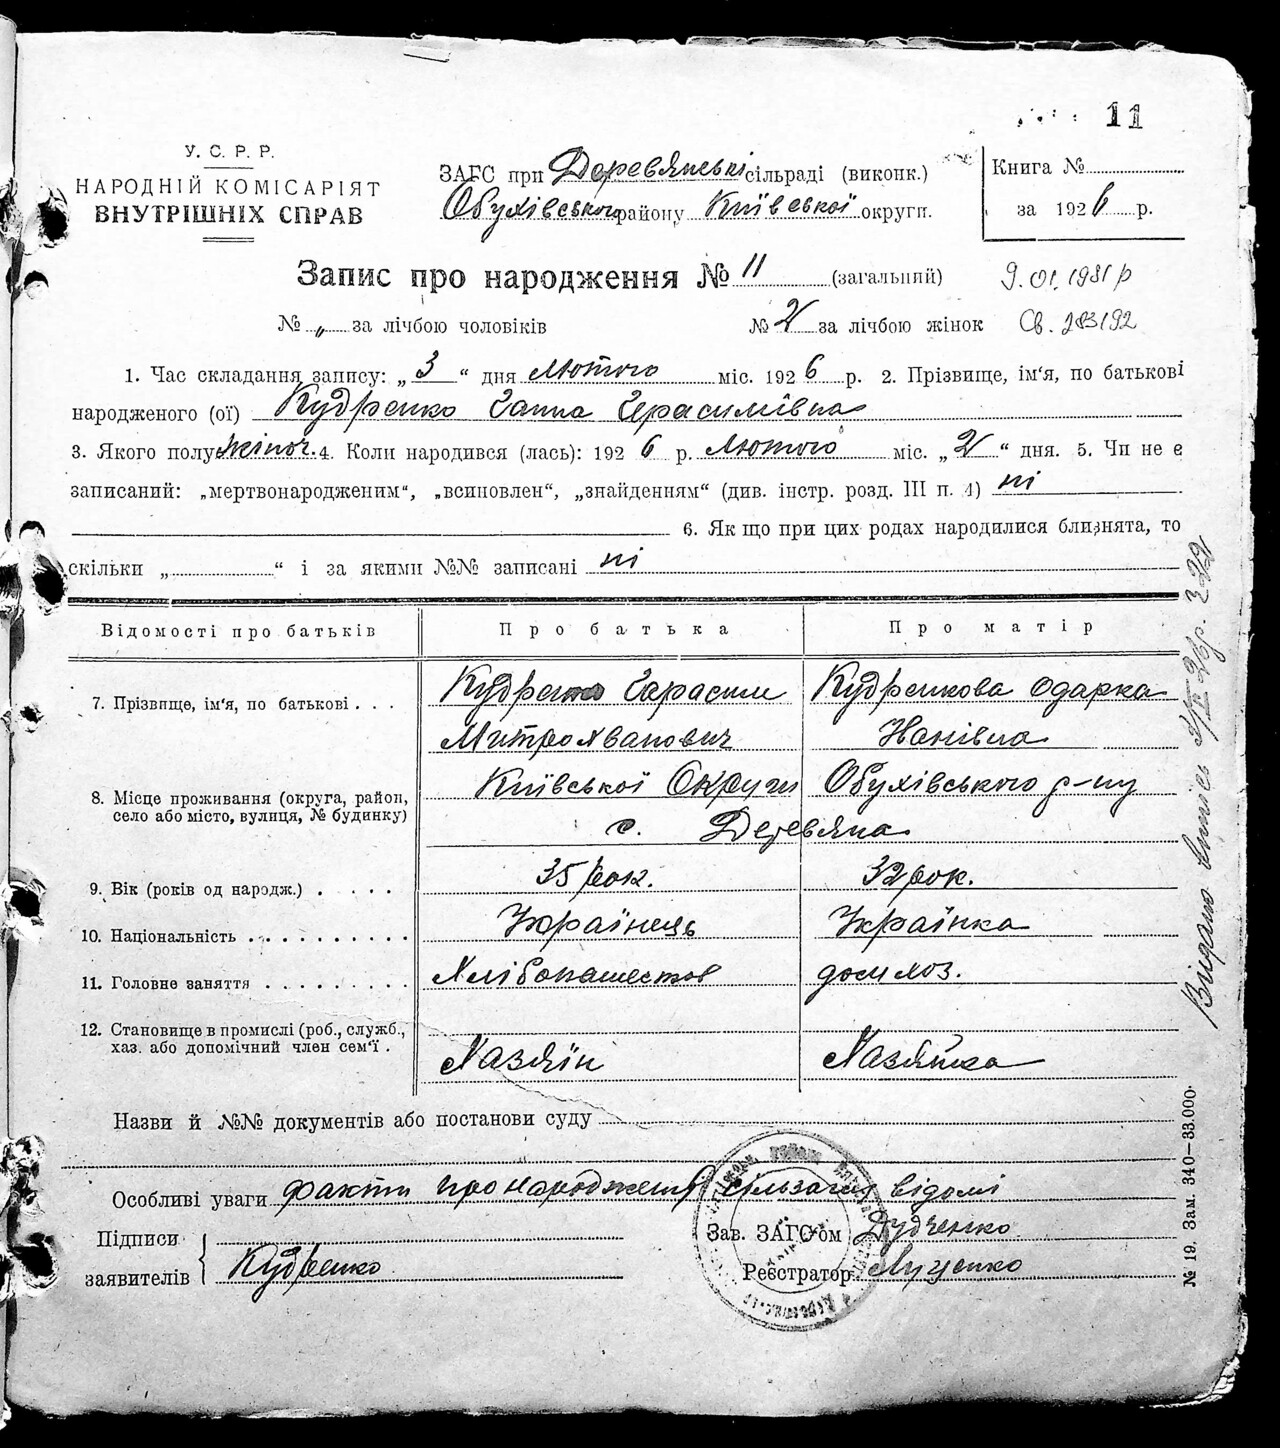 11
У. С. Р. Р.
НАРОДНІЙ КОМІСАРІЯТ
ВНУТРІШНІХ СПРАВ
ЗАГС при Деревянські сільраді (виконк.)
Обухівського району Київської округи.
Книга №
за 1926 р.
Запис про народження № 11 (загальний)
9.01.1981 р
№ „ за лічбою чоловіків № 2 за лічбою жінок
Св. 283192
1. Час складання запису: „ 3 “ дня Лютого міс. 1926 р. 2. Прізвище, ім'я, по батькові
народженого (ої) Кудренко Ганна Герасимівна
3. Якого полу жіноч. 4. Коли народився (лась): 1926 р. Лютого міс. „ 2 “ дня. 5. Чи не є
записаний: „мертвонародженим“, „всиновлен“, „знайденням“ (див. інстр. розд. III п. 4) ні
6. Як що при цих родах народилися близнята, то
скільки „ “ і за якими №№ записані ні
Відомості про батьків Про батька Про матір
7. Прізвище, ім'я, по батькові . . . Кудренко Гарасим Кудренкова Одарка
Митрохванович
8. Місце проживання (округа, район, Київської Округи Обухівського р-ну
село або місто, вулиця, № будинку) с. Деревяна
9. Вік (років од народж.) . . . . . 35 рок. 32 рок.
10. Національність . . . . . . . . . . Українець Українка
11. Головне заняття . . . . . . . . . Хлібопашество дом хоз.
12. Становище в промислі (роб., служб.,
хаз. або допомічний член сем'ї . Хазяїн Хазяйка
Назви й №№ документів або постанови суду
Особливі уваги факти про народження сільзагсу відомі
Підписи
заявителів Кудренко
Зав. ЗАГС'ом Дудченко
Реєстратор Луценко
№ 19. Зам. 340—33.000.